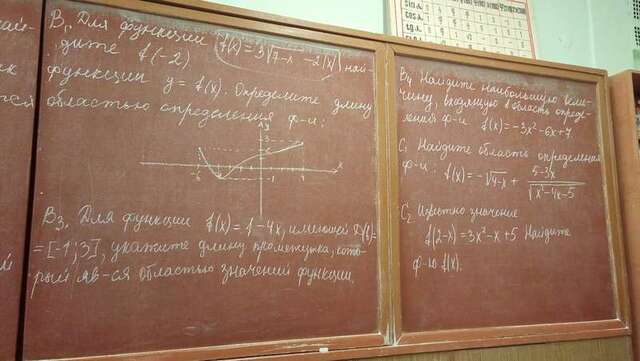 cos α
tg α
ctg α
B₁ Для функции f(x) = 3√7-x - 2|x| най-
дите f(-2)
функции y = f(x). Определите длину
областью определения ф-и:
y
x
B₃. Для функции f(x) = 1 - 4x, имеющей D(f) =
= [-1; 3], укажите длину промежутка, кото-
рый яв-ся областью значений функции.
B₄ Найдите наибольшую вели-
чину, входящую в область опреде-
ления ф-и f(x) = -3x² - 6x + 7
C₁ Найдите область определения
ф-и: f(x) = -√4-x + 5-3x / √x²-4x-5
C₂ Известно значение
f(2-x) = 3x² - x + 5 Найдите
ф-ю f(x).